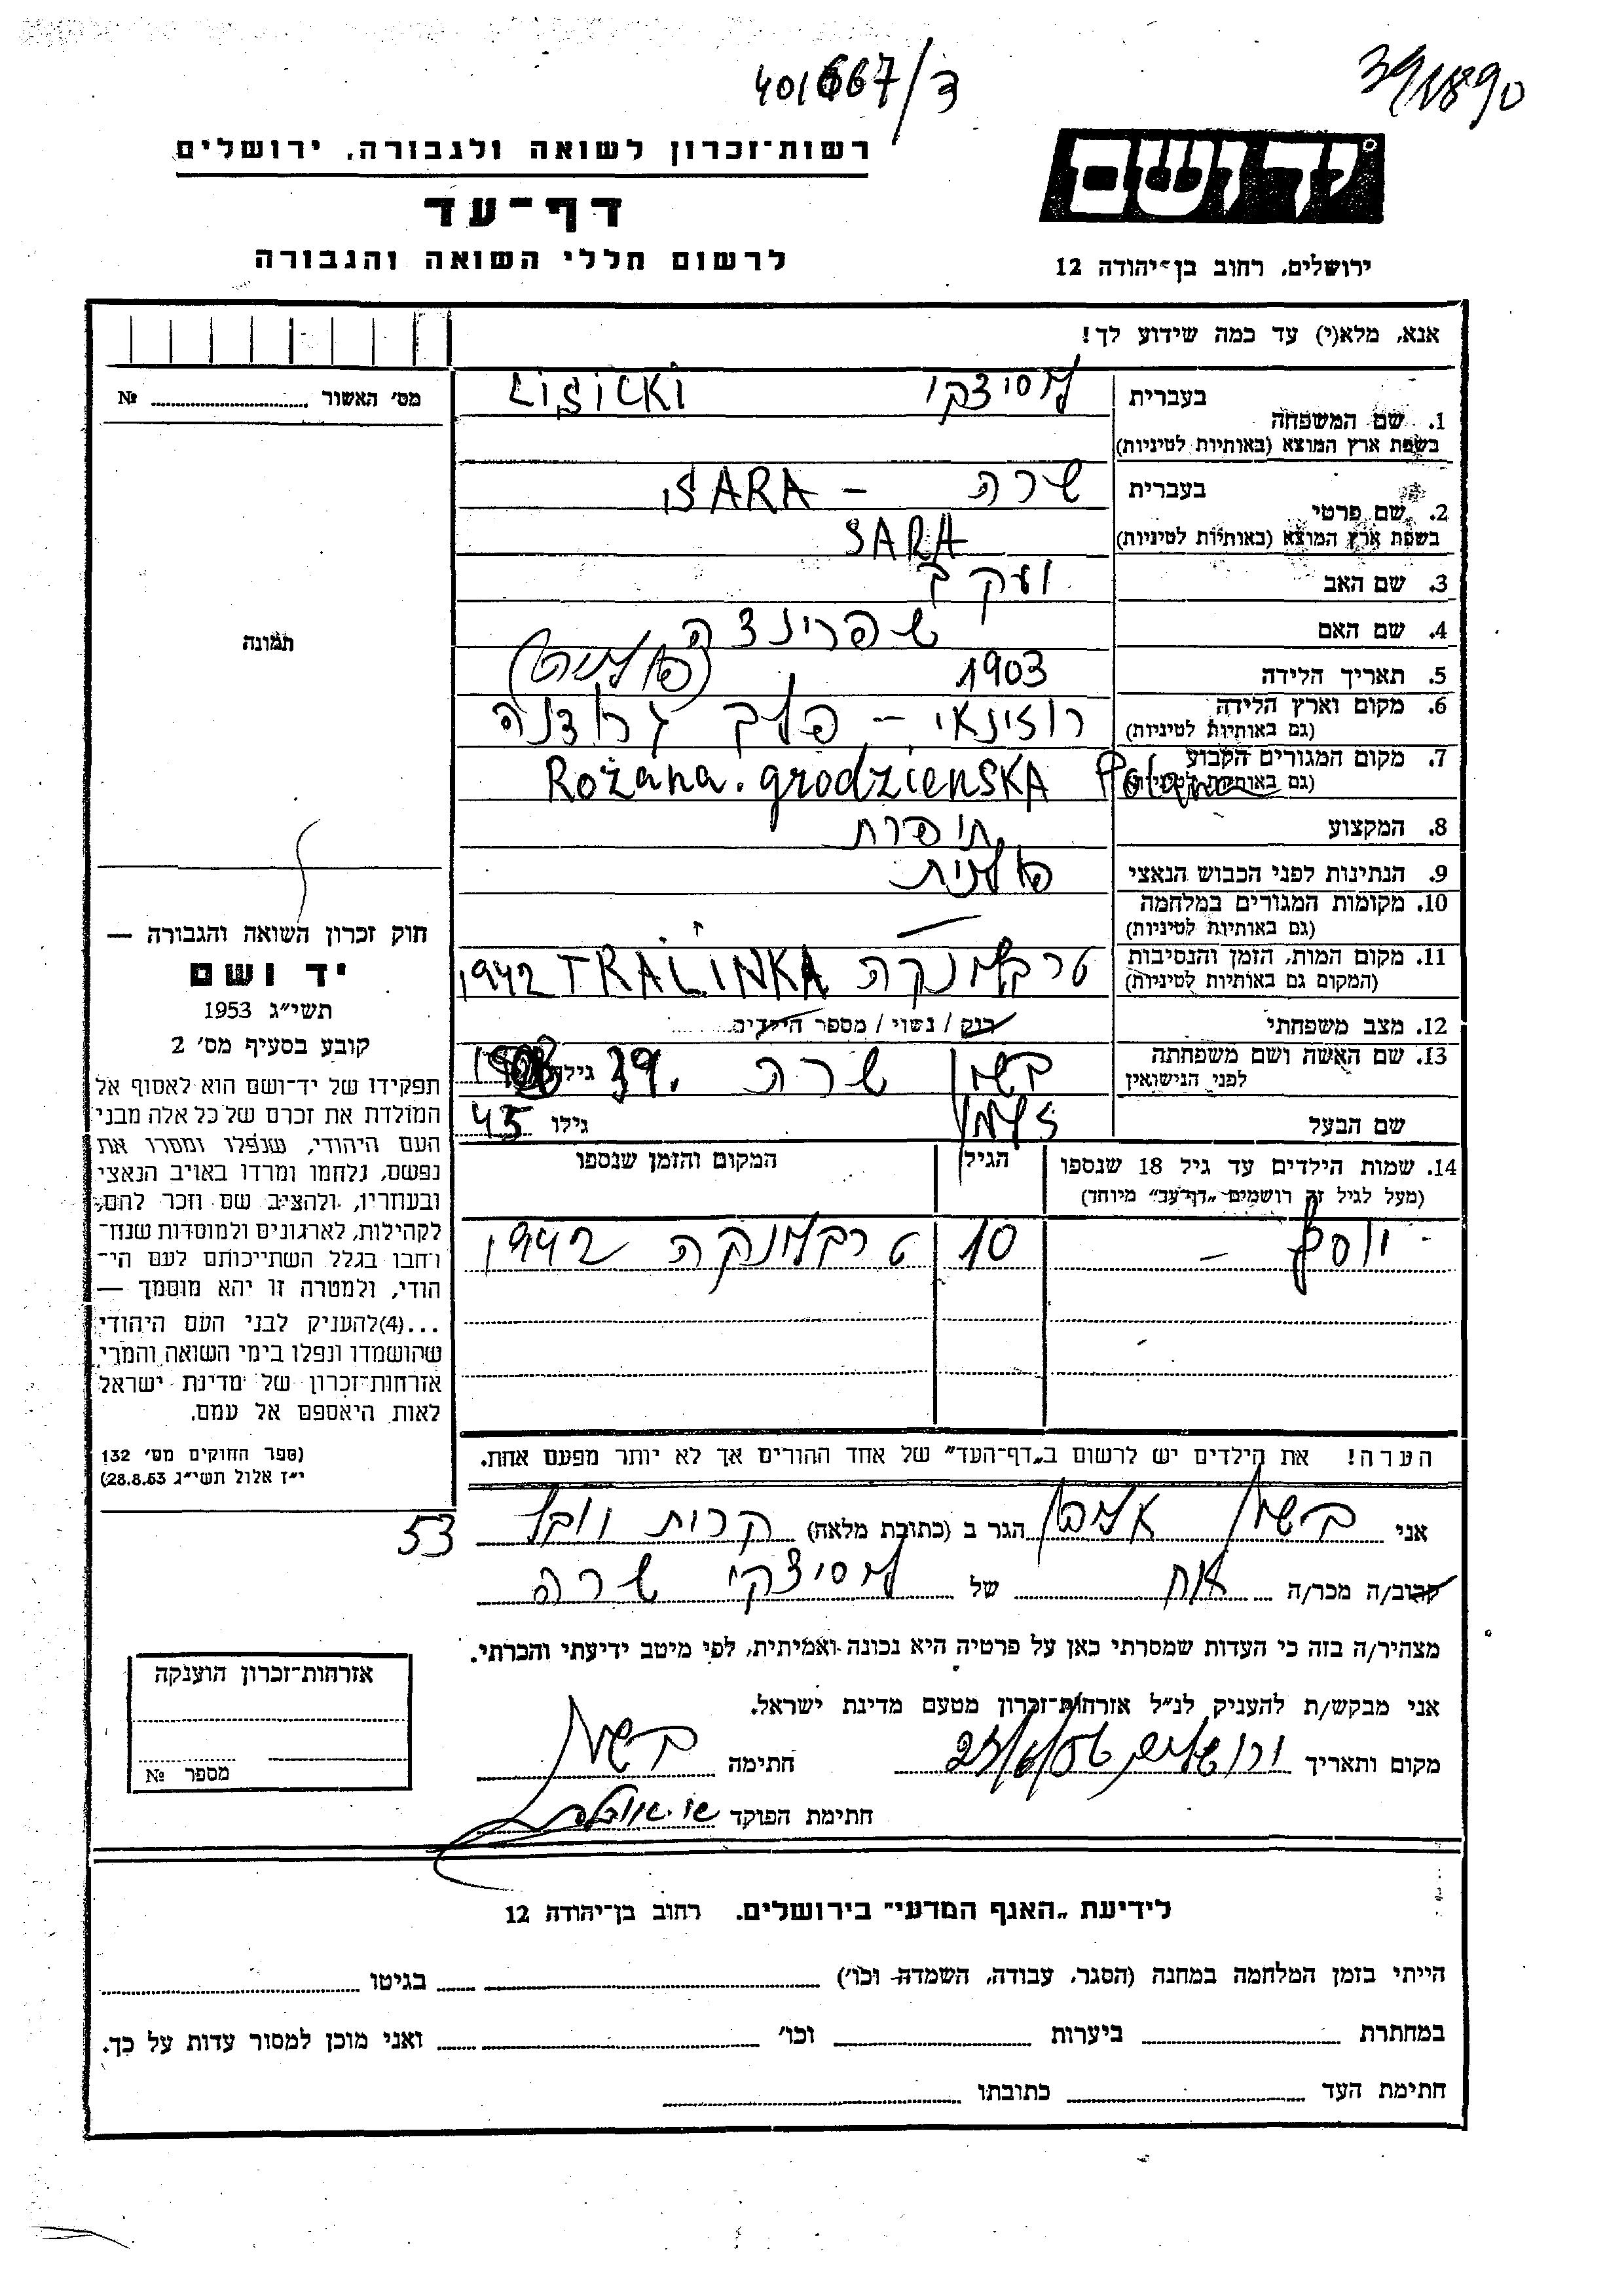 401667/ד
391890
רשות־זכרון לשואה ולגבורה, ירושלים
דף־עד
לרשום חללי השואה והגבורה
יד ושם
ירושלים, רחוב בן־יהודה 12
אנא, מלא(י) עד כמה שידוע לך!
מס׳ האשור № ..........
1. שם המשפחה
בעברית ליסיצקי LISICKI
בשפת ארץ המוצא (באותיות לטיניות)
2. שם פרטי
בעברית שרה – SARA
בשפת ארץ המוצא (באותיות לטיניות) SARA
3. שם האב יעקב
4. שם האם שפרינצה
5. תאריך הלידה 1903
6. מקום וארץ הלידה
(גם באותיות לטיניות)
רוזינאי – פלך גרודנה (פולין)
7. מקום המגורים הקבוע
(גם באותיות לטיניות)
Rożana. grodzienSKA
8. המקצוע תופרת
9. הנתינות לפני הכבוש הנאצי פולנית
10. מקומות המגורים במלחמה
(גם באותיות לטיניות) —
11. מקום המות, הזמן והנסיבות
(המקום גם באותיות לטיניות)
טרבלינקה TRALINKA 1942
12. מצב משפחתי רוק / נשוי / מספר הילדים..........
13. שם האשה ושם משפחתה
לפני הנישואין
בשן שרה 39. גילה
שם הבעל זלמן גילו 45
14. שמות הילדים עד גיל 18 שנספו
(מעל לגיל זה רושמים „דף־עד״ מיוחד)
הגיל
המקום והזמן שנספו
יוסף – 10 טרבלינקה 1942
הערה! את הילדים יש לרשום ב„דף־העד״ של אחד ההורים אך לא יותר מפעם אחת.
תמונה
חוק זכרון השואה והגבורה —
יד ושם
תשי״ג 1953
קובע בסעיף מס׳ 2
תפקידו של יד־ושם הוא לאסוף אל
המולדת את זכרם של כל אלה מבני
העם היהודי, שנפלו ומסרו את
נפשם, נלחמו ומרדו באויב הנאצי
ובעוזריו, ולהציב שם וזכר להם,
לקהילות, לארגונים ולמוסדות שנח־
רחבו בגלל השתייכותם לעם הי־
הודי, ולמטרה זו יהא מוסמך —
...(4)להעניק לבני העם היהודי
שהושמדו ונפלו בימי השואה והמרי
אזרחות־זכרון של מדינת ישראל
לאות היאספם אל עמם.
(ספר החוקים מס׳ 132
י״ז אלול תשי״ג 28.8.53)
אני בשן הגר ב (כתובת מלאה) קרית 53
קרוב/ה מכר/ה אח של ליסיצקי שרה
מצהיר/ה בזה כי העדות שמסרתי כאן על פרטיה היא נכונה ואמיתית, לפי מיטב ידיעתי והכרתי.
אני מבקש/ת להעניק לנ״ל אזרחות־זכרון מטעם מדינת ישראל.
מקום ותאריך ירושלים חתימה בשן
חתימת הפוקד
אזרחות־זכרון הוענקה
מספר №
לידיעת „האגף המדעי״ בירושלים. רחוב בן־יהודה 12
הייתי בזמן המלחמה במחנה (הסגר, עבודה, השמדה וכו׳) .......... בגיטו ..........
במחתרת .......... ביערות .......... וכו׳ .......... ואני מוכן למסור עדות על כך.
חתימת העד .......... כתובתו ..........